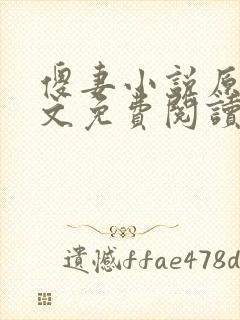 傻妻小説原
文免費閱讀
遺憾ffae478d